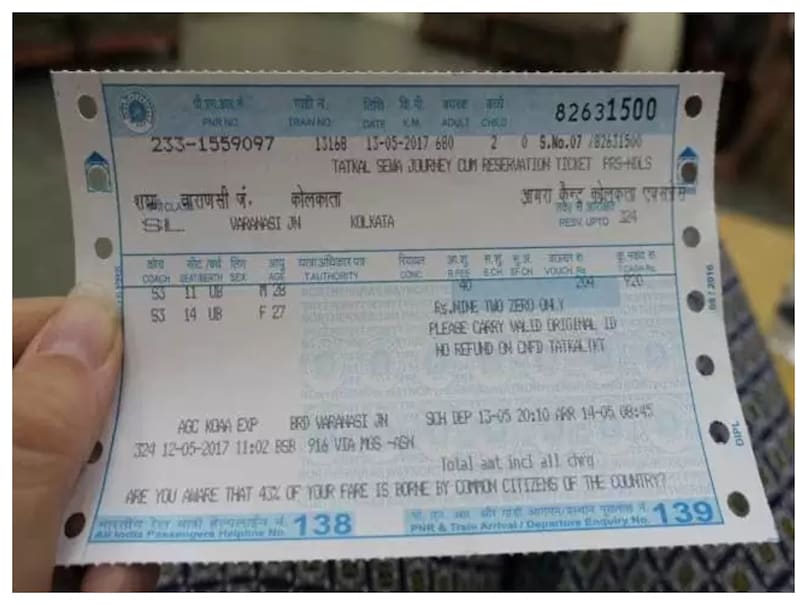 पी.एन.आर.नं. गाड़ी नं. तिथि कि.मी. वयस्क बच्चे 82631500
PNR NO. TRAIN NO. DATE K.M. ADULT CHILD
233-1559097 13168 13-05-2017 680 2 0 S.No.07 /82631500
TATKAL SEWA JOURNEY CUM RESERVATION TICKET PRS-NDLS
वाराणसी जं. कोलकाता आगरा कैन्ट कोलकाता
SL VARANASI JN KOLKATA RESV. UPTO 324
कोच सीट/बर्थ लिंग आयु यात्रा अधिकार पत्र रियायत आ.शु.
COACH SEAT/BERTH SEX AGE T.AUTHORITY CONC. R.FEE S.CH SF.CH VOUCH. Rs T.CASH Rs
S3 11 UB M 28 40 920
S3 14 UB F 27 Rs.NINE TWO ZERO ONLY
PLEASE CARRY VALID ORIGINAL ID
NO REFUND ON CNFD TATKALTKT
AGC KOAA EXP BRD VARANASI JN SCH DEP 13-05 20:10 ARR 14-05 08:45
324 12-05-2017 11:02 BSB 916 VIA MGS -ASN
Total amt incl all chrg
ARE YOU AWARE THAT 43% OF YOUR FARE IS BORNE BY COMMON CITIZENS OF THE COUNTRY?
भारतीय रेल यात्री हेल्पलाईन नं. 138
All India Passengers Helpline No.
PNR & Train Arrival / Departure Enquiry No. 139
DIPL